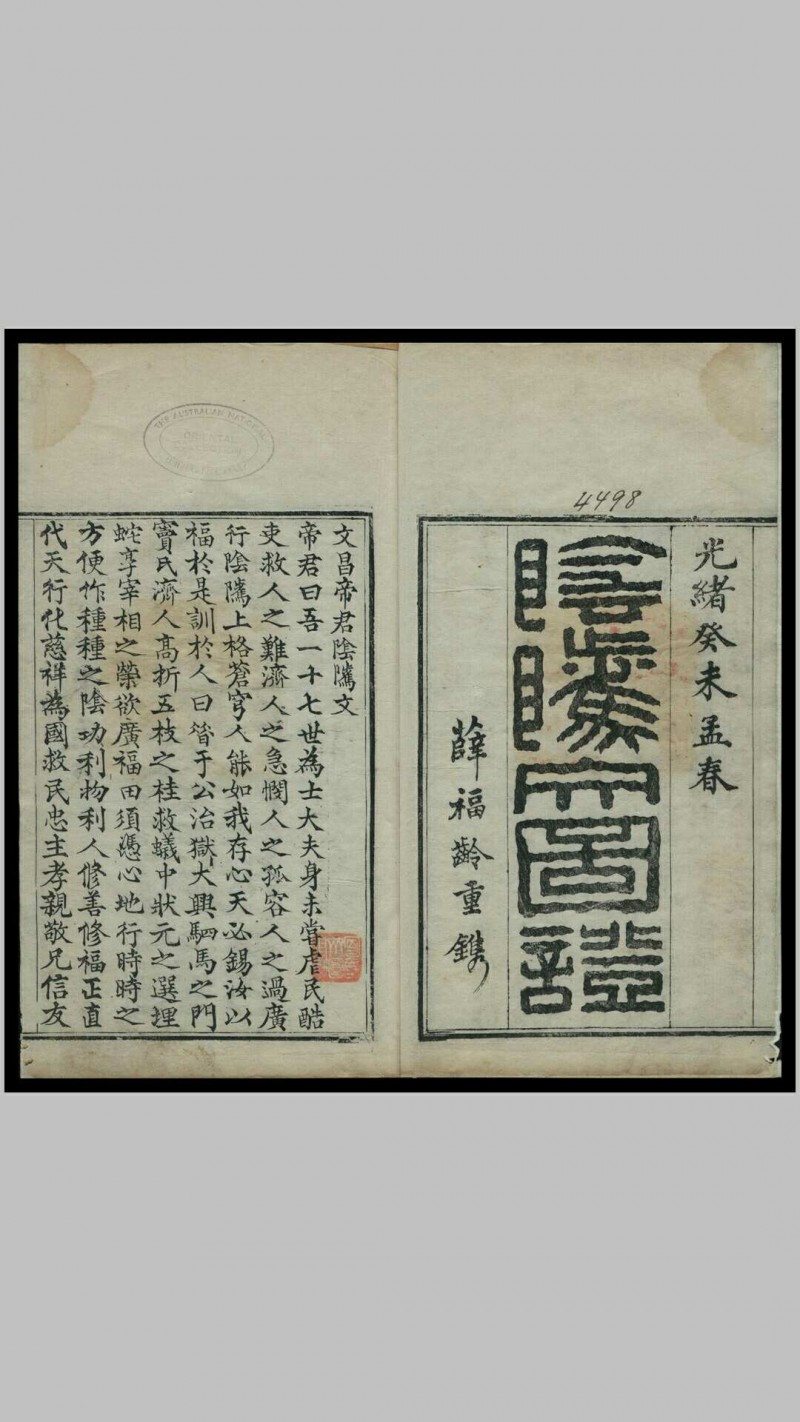 4498
光緒癸未孟春
陰隲文圖證
薛福齡重鐫
THE AUSTRALIAN NATIONAL
文昌帝君陰隲文
帝君曰吾一十七世為士大夫身未嘗虐民酷
吏救人之難濟人之急憫人之孤容人之過廣
行陰隲上格蒼穹人能如我存心天必錫汝以
福於是訓於人曰昝于公治獄大興駟馬之門
竇氏濟人高折五枝之桂救蟻中狀元之選埋
蛇享宰相之榮欲廣福田須憑心地行時時之
方便作種種之陰功利物利人修善修福正直
代天行化慈祥為國救民忠主孝親敬兄信友